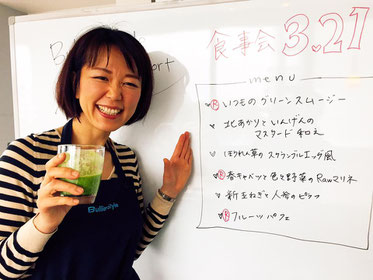 食事会 3.21
menu
Ⓡ いつものグリーンスムージー
北あかりといんげんの
マスタード和え
ほうれん草のスクランブルエッグ風
Ⓡ 春キャベツと色々野菜のRawマリネ
新玉ねぎと人参のピラフ
Ⓡ フルーツパフェ